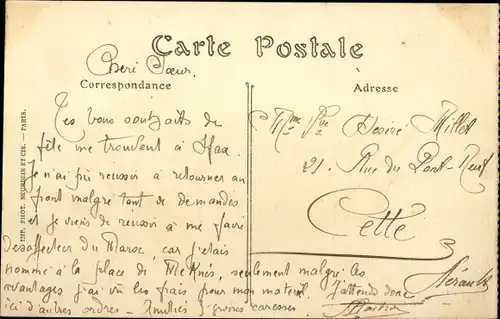 Carte Postale
Cheri Sœur.
Correspondance
Adresse
Tes bons souhaits de
fête me trouvent à Sfax
Je n'ai pu reussir à retourner au
front malgré tant de demandes
et je viens de réussir à me faire
Desaffecter du Maroc, car j'etais
nommé à la place de Meknés, seulement malgré les
avantages j'ai vu les frais pour mon materiel. J'attends donc
ici d'autres ordres. Amitiés grosses caresses
Mme Vve Desiré Millet
21. Rue du Pont-Neuf
Cette
Hérault
IMP. PHOT. NEURDEIN ET CIE. — PARIS.